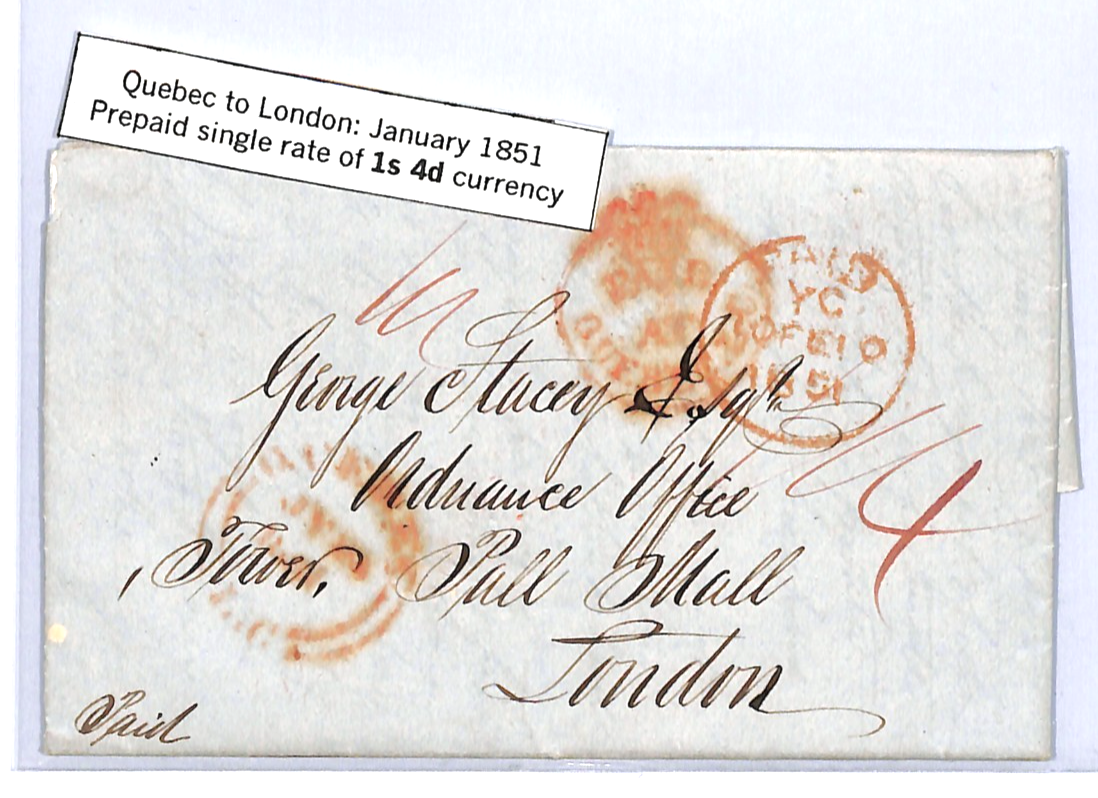 Quebec to London: January 1851
Prepaid single rate of 1s 4d currency
PAID
YC
10 FE 10
1851
George Stacey Esqre
Ordnance Office
4
Tower, Pall Mall
London
Paid